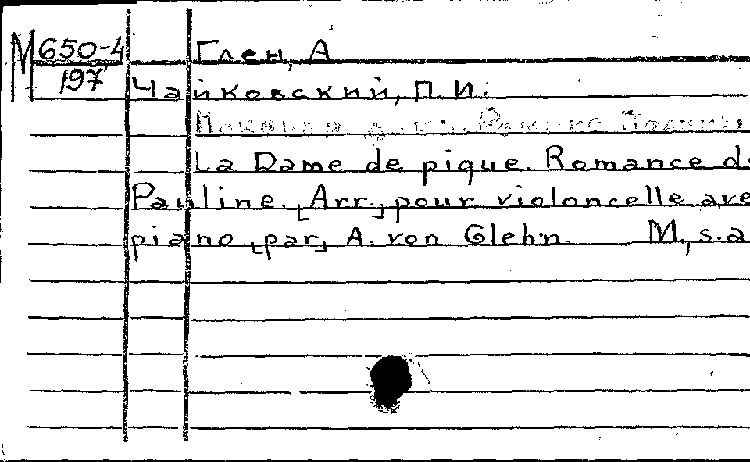 М 650-4
197
Глен, А
Чайковский, П. И.
Романс
La Dame de pique. Romance d
Pauline. [Arr.] pour violoncelle ave
piano [par] A. von Glehn. M., s.a